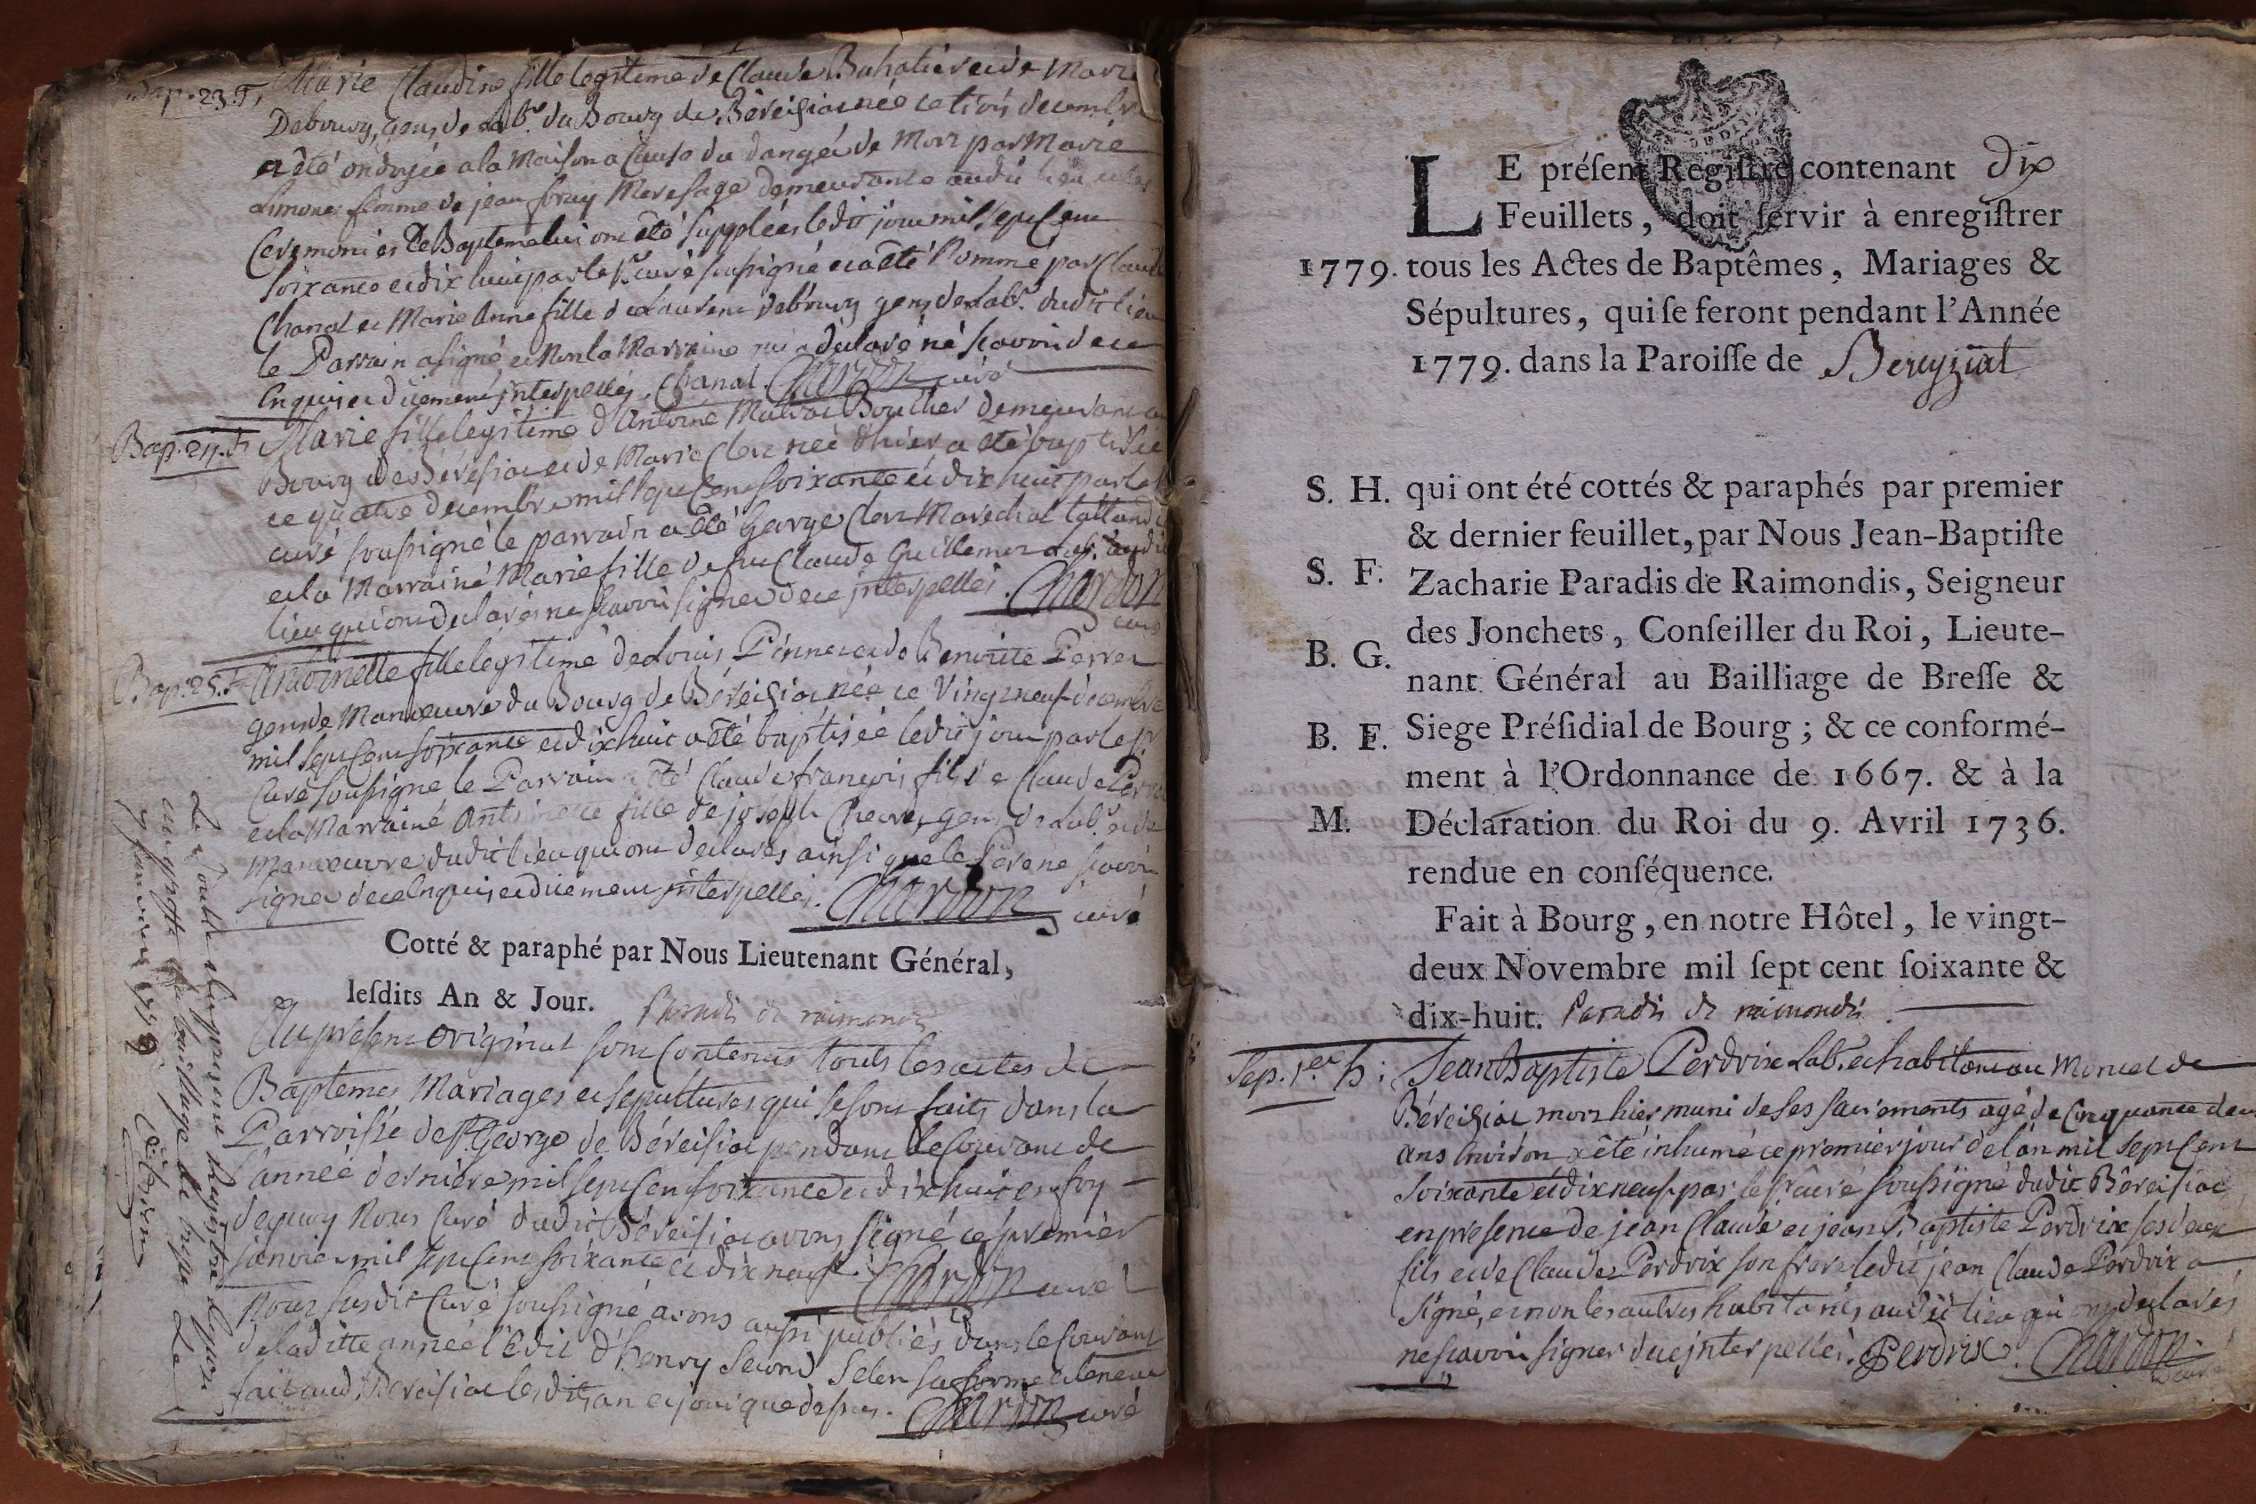 Bap. 23. f. Marie Claudine fille legitime de Claude Buhatier et de Marie
Debourg, gens de Labr. du Bourg de Béreisiat née ce trois decembre
a été ondoyée a la Maison a Cause du dangér de Mort par Marie
femme de jean fray Meresage demeurante audit lieu et les
Ceremonies de Baptême lui ont été suppléés ledit jour mil sept Cent
soixante et dix huit par le Sr. curé soussigné et a été Nommé par Claude
Chanal et Marie Anne fille de Laurent debourg gens de Labr. dudit lieu
le Parrain a signé et Non la Marraine qui a déclaré né sçavoir de ce
Enquis et dûement interpellés. Chanal. Chardon curé
Bap. 24. f. Marie fille legitime d'Antoine Boucher demeurant au
Bourg de Béresiat et de Marie Clerc née d'hier a été baptisée
ce quatre decembre mil sept Cent soixante et dix huit par le Sr.
curé soussigné le parrain a été George Clerc Marechal tallandier
et la Marraine Marie fille de feu Claude Guillemet Lab. dudit
lieu qui ont declarés ne sçavoir signer de ce interpellés. Chardon
curé
Bap. 25. f. Antoinette fille légitime de Louis Pénnet et de Benoite Perret
gens de Manoeuvre du Bourg de Béreisiat née ce vingt neuf decembre
mil sept Cent soixante et dix huit a été baptisée ledit jour par le Sr.
Curé soussigné le Parrain a été Claude françois fils de Claude
et la Marraine Antoinette fille de joseph gens de Lab. et de
manoeuvre dudit lieu qui ont declarés ainsi que le Pere ne sçavoir
signer de ce Enquis et dûement interpellés. Chardon curé
Cotté & paraphé par Nous Lieutenant Général,
lesdits An & Jour. Paradis de raimondis
Au présent original sont Contenus touts les actes de
Baptemes Mariages et sepultures qui se sont faits dans la
Parroisse de St. George de Béreisiat pendant le Courant de
l'année derniere mil sept Cent soixante et dix huit en foy
de quoy Nous Curé dudit Béreisiat avons signé ce premier
janvier mil sept Cent soixante et dix neuf. Chardon curé
Nous susdit Curé soussigné avons aussi publiés dans le Courant
de laditte année l'Edit d'henry second selon sa forme et teneur
fait audit Béreisiat lesdits an et jour que dessus. Chardon curé
Le double du present Registre deposé
au greffe du bailliage de bresse Le
7 janvier 1779
LE préſent Regiſtre contenant dix
Feuillets, doit ſervir à enregiſtrer
1779. tous les Actes de Baptêmes, Mariages &
Sépultures, qui ſe feront pendant l'Année
1779. dans la Paroiſſe de Bereyziat
S. H. qui ont été cottés & paraphés par premier
& dernier feuillet, par Nous Jean-Baptiſte
S. F. Zacharie Paradis de Raimondis, Seigneur
des Jonchets, Conſeiller du Roi, Lieute-
B. G. nant Général au Bailliage de Breſſe &
B. F. Siege Préſidial de Bourg; & ce conformé-
ment à l'Ordonnance de 1667. & à la
M. Déclaration du Roi du 9. Avril 1736.
rendue en conſéquence.
Fait à Bourg, en notre Hôtel, le vingt-
deux Novembre mil ſept cent ſoixante &
dix-huit. Paradis de raimondis
Sep. 1er. h: Jean Baptiste Perdrix Lab. et habitant au Moncel de
Béreisiat mort hier muni de ses sacrements agé de Cinquante deux
ans Environ a été inhumé ce premier jour de l'an mil sept Cent
soixante et dix neuf par le Sr. curé soussigné dudit Béreisiat
en presence de jean Claude et jean Baptiste Perdrix ses deux
fils et de Claude Perdrix son frere ledit jean Claude Perdrix a
signé, et non les aultres habitants audit lieu qui ont declarés
ne sçavoir signer de ce interpellés. Perdrix. Chardon
curé